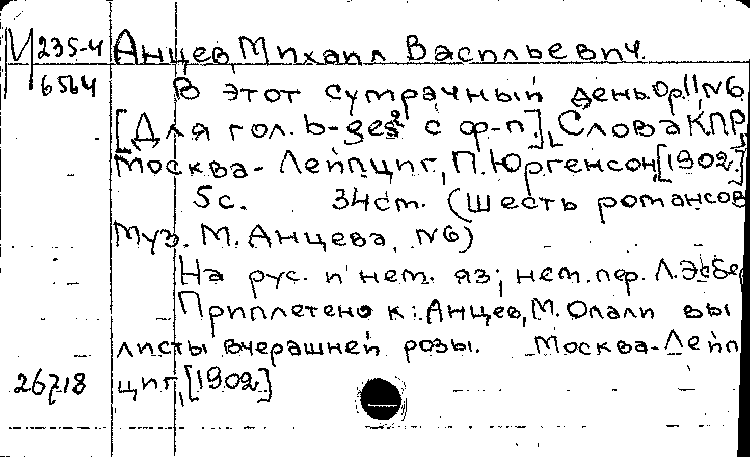 И 235-4 Анцев, Михаил Васильевич.
6564 В этот сумрачный день. Op.11, №6
[Для гол. b-ges² с ф-п.], Слова К.П.Р.
Москва-Лейпциг, П. Юргенсон, [1902.]
5с. 34cm. (Шесть романсов
муз. М. Анцева, №6)
На рус. и нем. яз; нем. пер. Л. Эсбе
Приплетено к: Анцев, М. Опали вы
листы вчерашней розы. Москва-Лейп
26718 циг, [1902.]